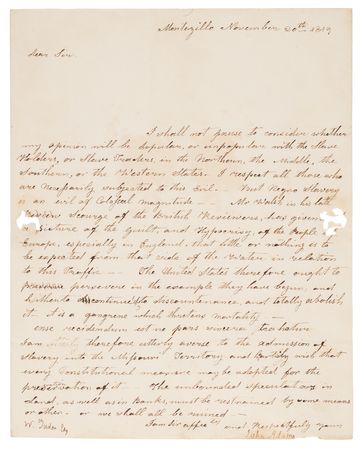 Montezillo November 20th 1819
Dear Sir.
I shall not pause to consider whether
my opinion will be popular, or unpopular with the Slave
Holders, or Slave Traders, in the Northern, the Middle, the
Southern, or the Western States. I respect all those who
are necessarily subjected to this Evil. — But Negro Slavery
is an evil of Colossal magnitude — Mr Walsh in his late
Scourge of the British Reviewers, has given
picture of the guilt, and Hypocrisy, of the People
Europe, especially in England, that little or nothing is to
be expected from that side of the Water in relation
to this Traffic — The United States therefore ought to
persevere in the example they have begun, and
hitherto continued to discountenance, and totally abolish
it. it is a gangrene which threatens mortality —
ense recidendum est ne pars
I am therefore utterly averse to the admission of
Slavery into the Missouri Territory and heartily wish that
every Constitutional measure may be adopted for the
preservation of it — The Speculators in
Land, as well as in Banks, must be restrained by some means
or other — or we shall all be ruined —
I am Sir and respectfully yours
W. Tudor Esq
John Adams